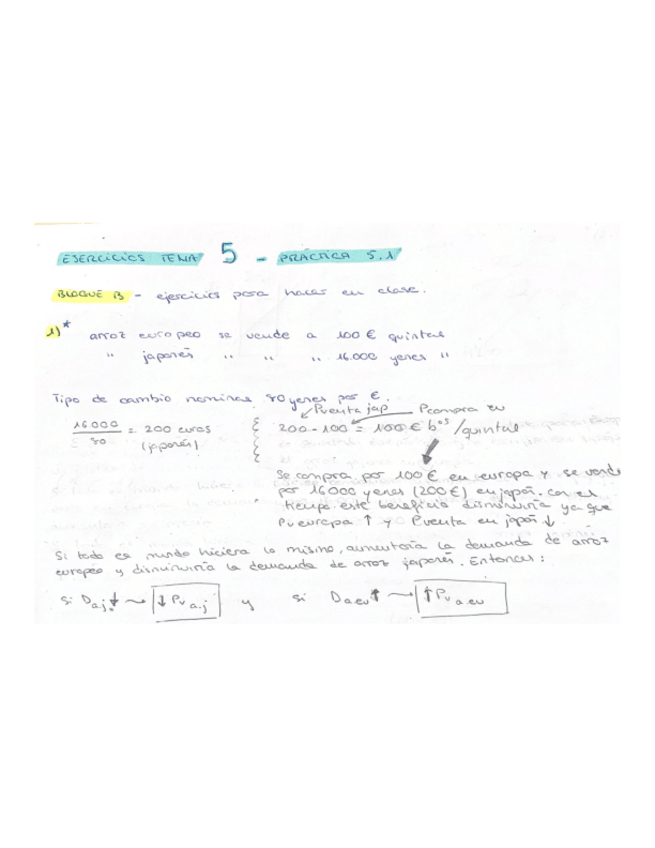 EJERCICIOS TEMA 5 - PRÁCTICA 5.1
BLOQUE B - ejercicios para hacer en clase.
1)* arroz europeo se vende a 100 € quintal
" japonés " " " 16.000 yenes "
Tipo de cambio nominal 80 yenes por €.
Pventa jap Pcompra eu
16000/80 = 200 euros (japonés)
200 - 100 = 100 € bºs/quintal
Se compra por 100 € en europa y se vende
por 16000 yenes (200 €) en japón. con el
tiempo este beneficio disminuiría ya que
Pv europa ↑ y Pventa en japón ↓.
Si todo el mundo hiciera lo mismo, aumentaría la demanda de arroz
europeo y disminuiría la demanda de arroz japonés. Entonces:
Si Da.j. ↓ → ↓ Pv a.j y si Da eu ↑ → ↑ Pv a.eu